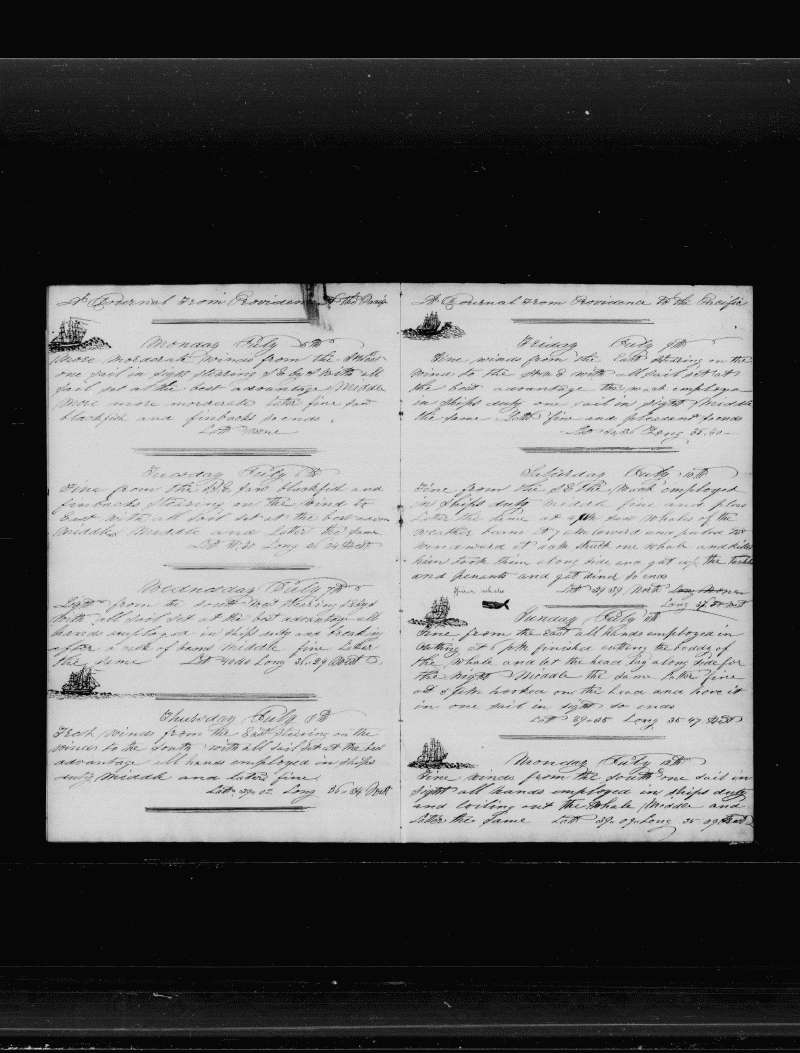 A Gournal From Providence to the Pacific
Monday July 5th
More morderate winds from the
one sail in sight stearing S E by S with all
sail set at the best advantage Middle
More more morderate Later fine saw
blackfish and finbacks so ends
Latt None
Tuesday July 6th
Fine from the S E saw blackfish and
finbacks stearing on the wind to
East with all sail set at the best advan
Middle Middle and Later the same
Latt Long 36 West
Wednesday July 7th
Light from the South West stearing
with all sail set at the best advantage all
hands employed in ships duty and breaking
after a cask of bread Middle fine Later
the same Latt Long 36-29 West
Thursday July 8th
Fresh winds from the East stearing on the
wind to the South with all sail set at the best
advantage all hands employed in ships
duty Middle and Later fine
Latt 39-02 Long 36-34 West
A Gournal From Providence to the Pacific
Friday July 9th
Fine winds from the East stearing on the
wind to the with all sail set at
the best advantage the watch employed
in ships duty one sail in sight Middle
the same Latt fine and pleasent so ends
Long 35,60
Saturday July 10th
Fine from the S E the watch employed
in ships duty Middle fine and pleas
Later the same at saw Whales of the
weather beam at lowered and pulled to
windward at struck one whale and killed
him took him along side and got up the tackles
and penants and got diner so ends
Latt 39 39 North
Long West
Sunday July 11th
Fine from the East all hands employed in
Cutting at 5 PM finished cutting the boddy of
the Whale and let the head lay along side for
the night Middle the same Latter fine
at worked on the head and hove it
in one sail in sight so ends
Latt 39-35 Long 35 47 West
Monday July 12th
Fine winds from the South one sail in
sight all hands employed in ships duty
and boiling out the Whale Middle and
Latter the same Latt 39-09 Long 35-09 West